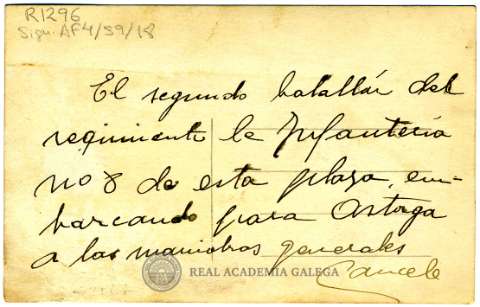 R1296
Sign. AF4/59/18
El segundo batallón del
regimiento le Infanteria
nº 8 de esta plaza, em-
barcando para Astorga
a las maniobras generales
Cancelo
REAL ACADEMIA GALEGA